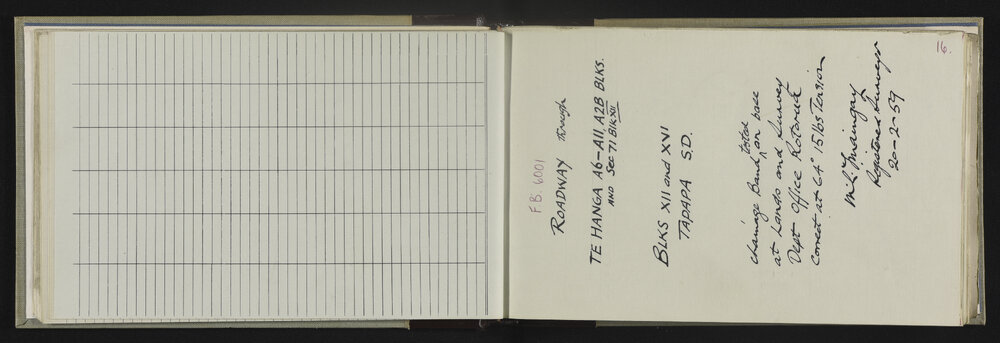 16.
F.B. 6001
ROADWAY through
TE HANGA A6-A11, A2B BLKS.
AND Sec 71 Blk XII
BLKS XII and XVI
TAPAPA S.D.
chainage Band, tested on base
at Lands and Survey
Dept Office Rotorua
Correct at 64° 15 lbs Tension
Registered Surveyor
20-2-59